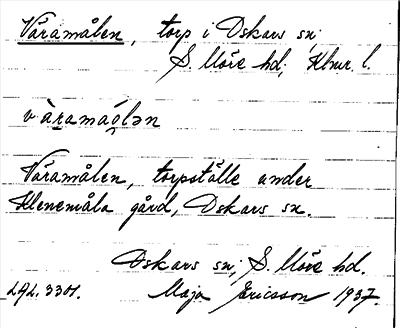 Våramålen, torp i Oskars sn;
S. Möre hd; Klmr. l.
våramaólən
Våramålen, torpställe under
Klenemåla gård, Oskars sn.
Oskars sn; S. Möre hd.
LAL. 3301. Maja Ericsson 1937.